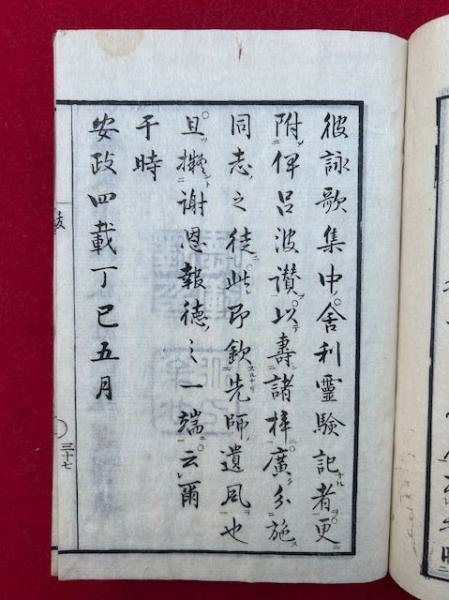 彼詠歌集中舎利靈驗記者更
附俾呂波讃以壽諸梓廣分施
同志之徒此即欽先師遺風也
且擬謝恩報德之一端云爾
于時
安政四載丁巳五月
三十七